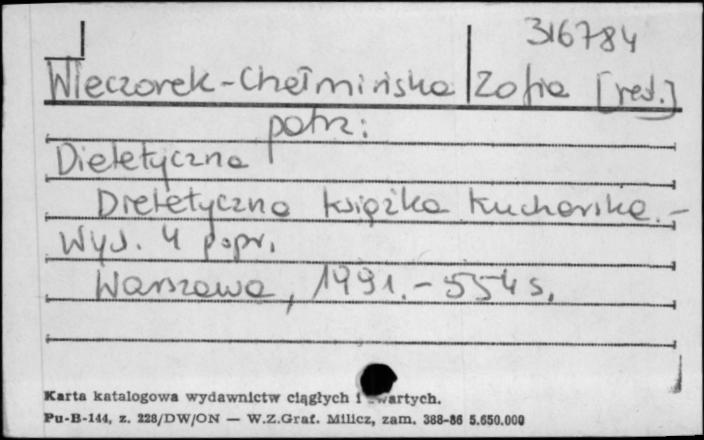 316784
Wieczorek-Chełmińska Zofia [red.]
patrz:
Dietetyczna
Dietetyczna książka kucharska. -
Wyd. 4 popr.
Warszawa, 1991. - 554 s.
Karta katalogowa wydawnictw ciągłych i zwartych.
Pu-B-144, z. 228/DW/ON — W.Z.Graf. Milicz, zam. 388-86 5.650.000